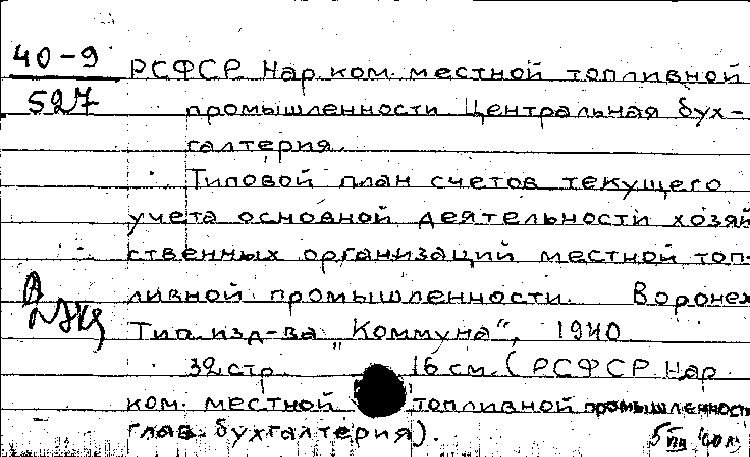 40-9
527
РСФСР Нар.ком. местной топливной
промышленности. Центральная бух-
галтерия.
Типовой план счетов текущего
учета основной деятельности хозяй
ственных организаций местной топ-
ливной промышленности. Воронеж
Тип. изд-ва „Коммуна", 1940
32 стр. 16 см. (РСФСР Нар
ком. местной топливной промышленност
глав. бухгалтерия).